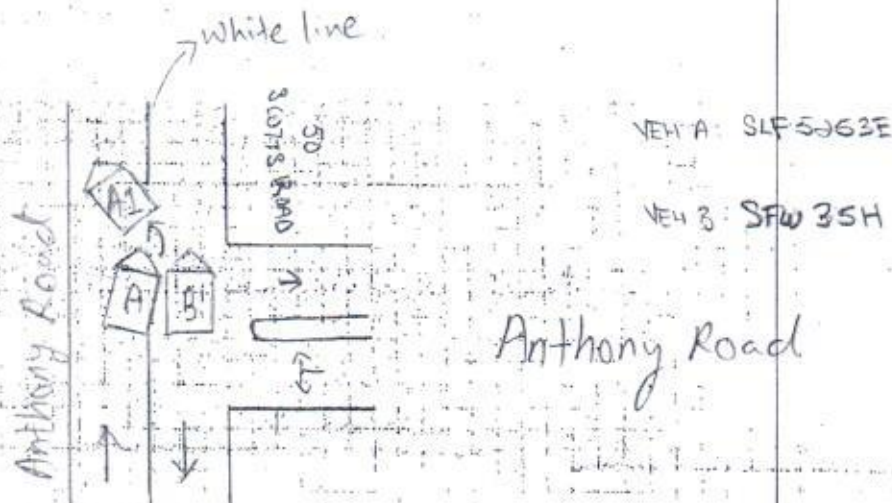 white line
50
SCOTTS ROAD
VEH A: SLF5263E
VEH B: SFW 35H
A1
A
B
Anthony Road
Anthony Road